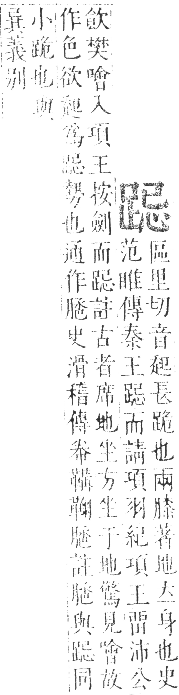 跽
區里切音起長跪也兩膝著地大身也史
范睢傳秦王跽而請項羽紀項王留沛公
飲樊噲入項王按劍而跽註古者席地坐方坐于地驚見噲故
作色欲起為跽勢也通作史滑稽傳帣韝鞠註與跽同
小跪也與
異義別